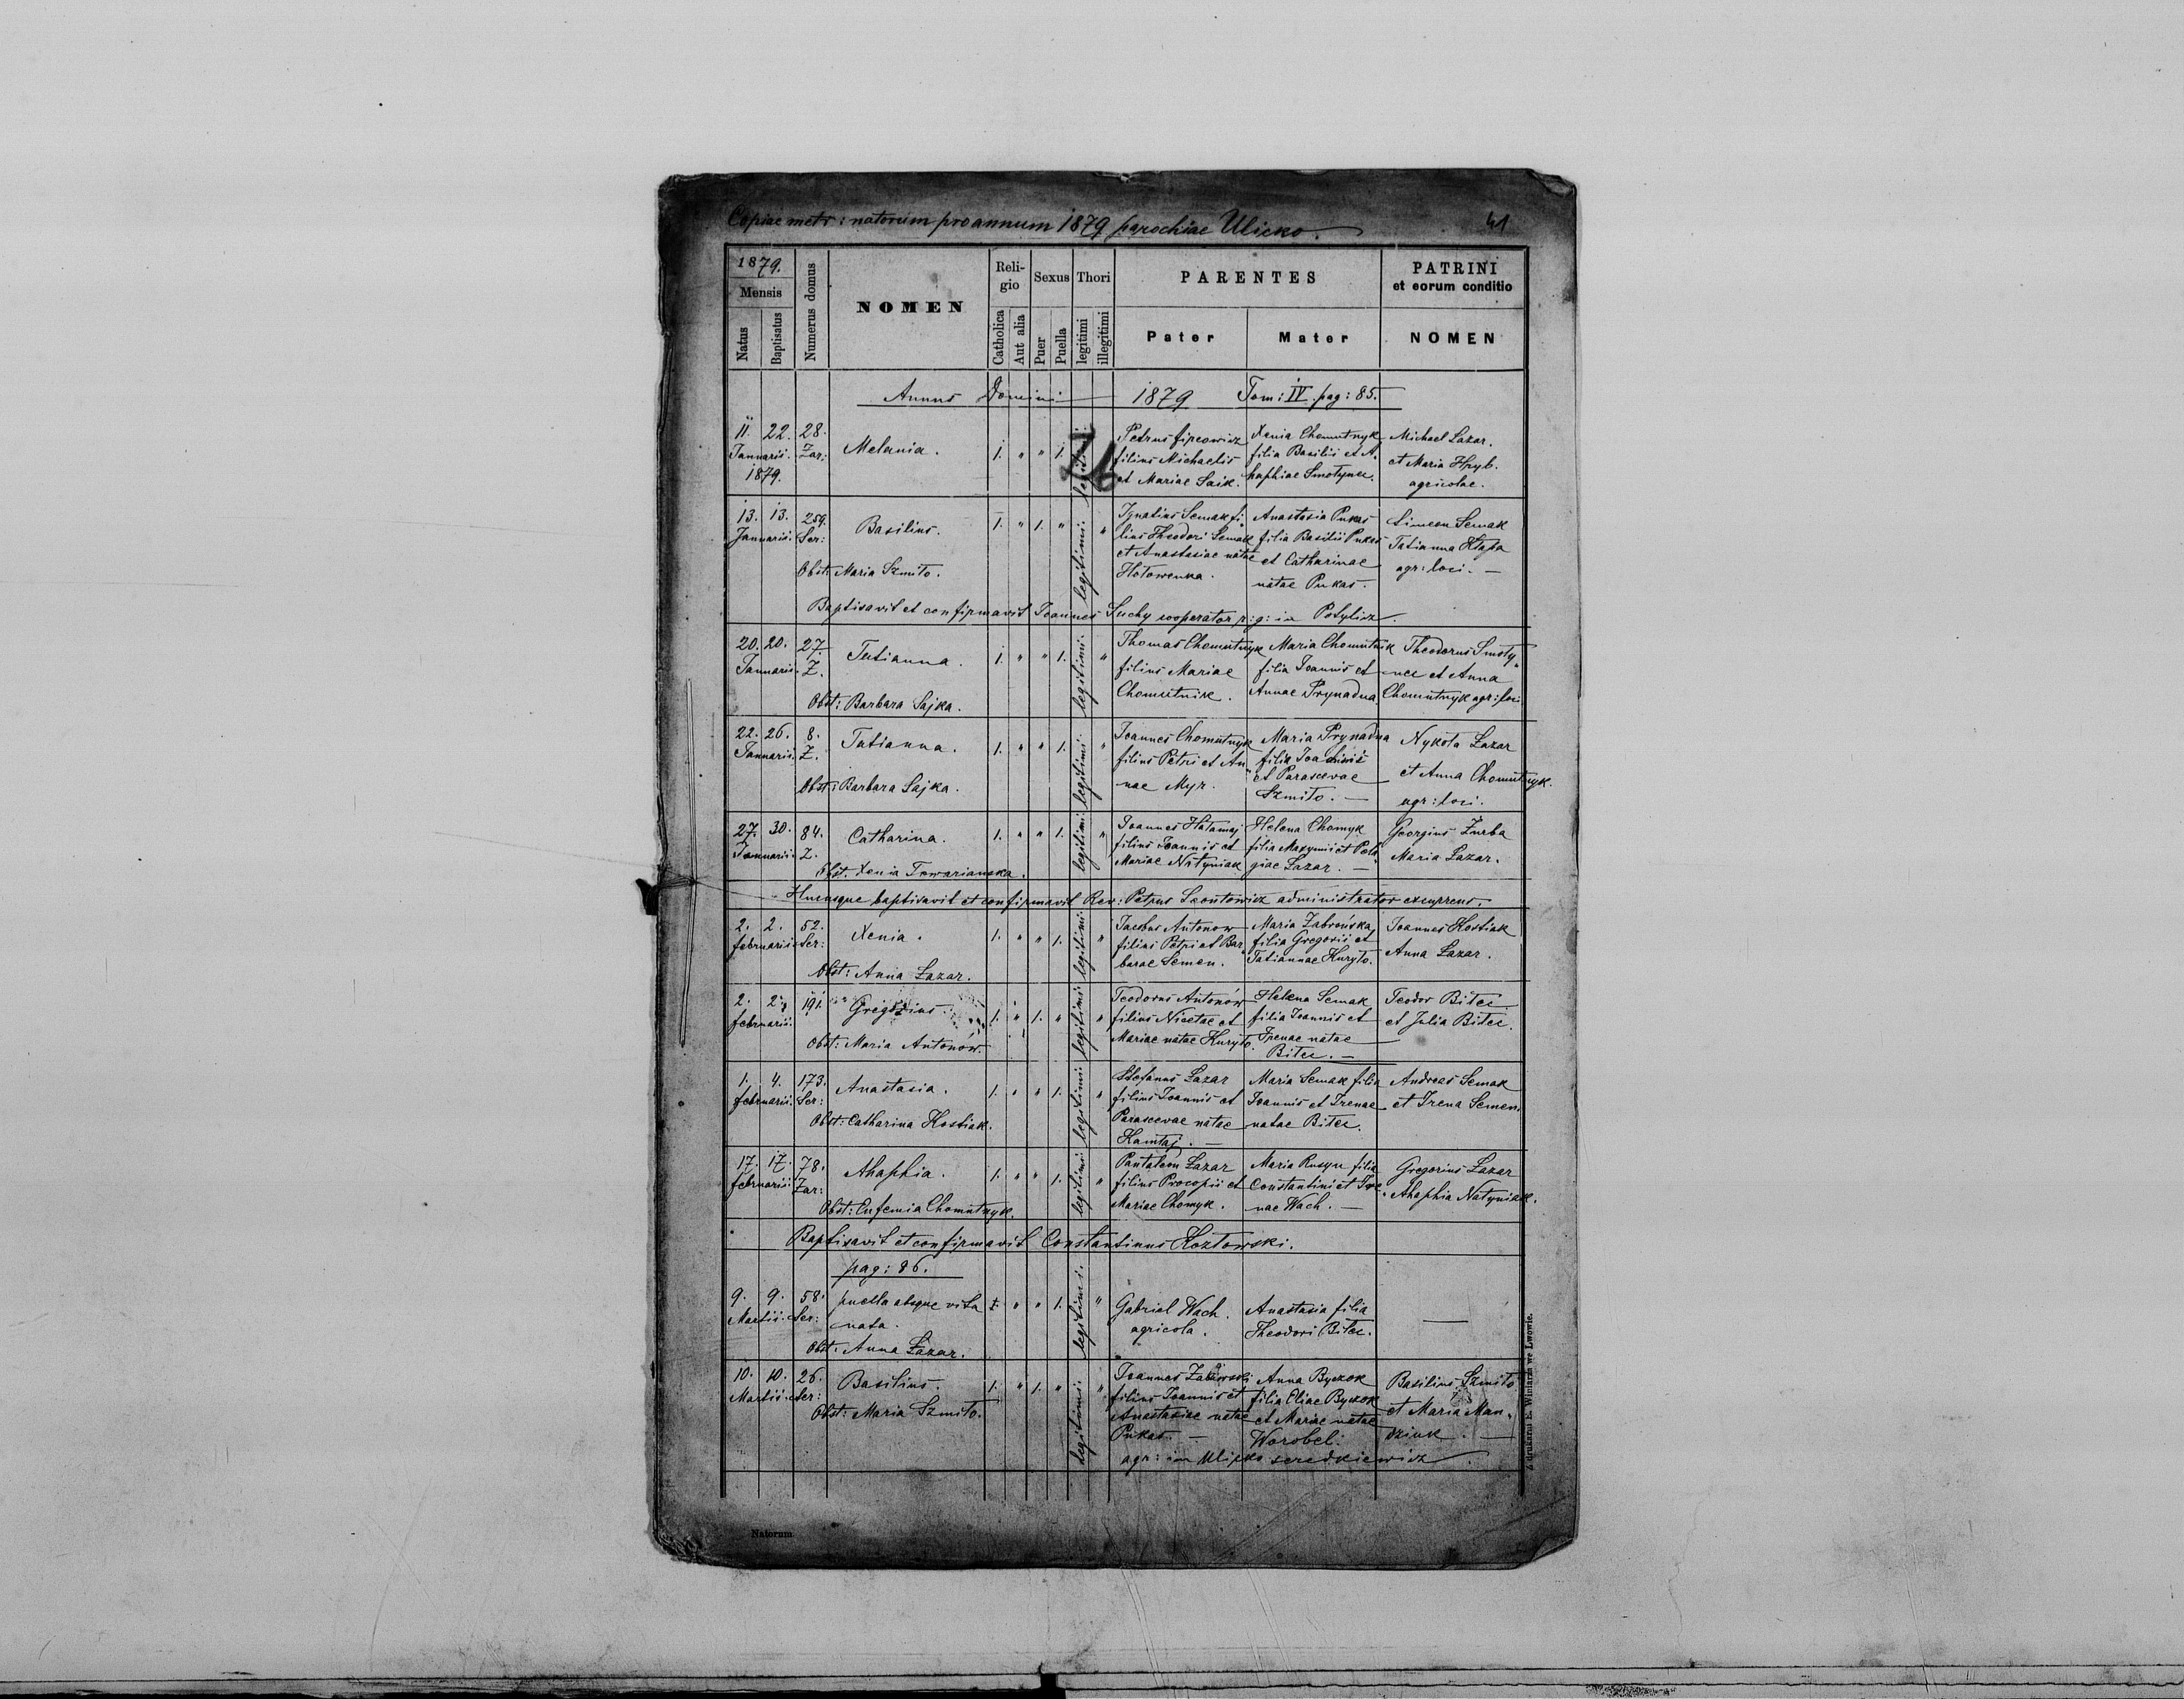 Copiae metr: natorum pro annum 1879 parochiae Ulicko.
41
1879.
Mensis
Natus
Baptisatus
Numerus domus
NOMEN
Religio
Catholica
Aut alia
Sexus
Puer
Puella
Thori
legitimi
illegitimi
PARENTES
Pater
Mater
PATRINI
et eorum conditio
NOMEN
Annus Domini 1879 Tom: IV. pag: 85.
11. 22. 28.
Januarii. Zar:
1879.
Melania.
1. " " 1. legitimi
Petrus
filius Michaelis
et Mariae Saik.
Xenia Chomutnyk
filia Basilii et A-
haphiae Smotynec.
Michael Lazar.
et Maria Hryb.
agricolae.
13. 13. 259.
Januarii. Ser:
Basilius.
Obst: Maria Szmito.
1. " 1. " legitimi. "
Ignatius Semak fi-
lius Theodori Semak
et Anastasiae natae
Hotowenka.
Anastasia Pukas
filia Basilii Pukas
et Catharinae
natae Pukas.
Simeon Semak
Tatianna
agr: loci. —
Baptisavit et confirmavit Joannes Suchy cooperator r: g: in Potylicz.
20. 20. 27.
Januarii. Z.
Tatianna.
Obst: Barbara Sajka.
1. " " 1. legitimi. "
Thomas Chomutnyk
filius Mariae
Chomutnik.
Maria Chomutnik
filia Joannis et
Annae Prynadna
Theodorus Smoty-
nec et Anna
Chomutnyk agr: loci
22. 26. 8.
Januarii. Z.
Tatianna.
Obst: Barbara Sajka.
1. " " 1. legitimi. "
Joannes Chomutnyk
filius Petri et An-
nae Myr.
Maria Prynadna
filia Joannis
et Parascevae
Szmito. —
Nykota Lazar
et Anna Chomutnyk.
agr: loci.
27. 30. 84.
Januarii. Z.
Catharina.
Obst. Xenia Towarianska.
1. " " 1. legitimi. "
Joannes Hatamaj
filius Joannis et
Mariae Natyniak
Helena Chomyk
filia Maxymi et Pela-
giae Lazar. —
Georgius Żurba
Maria Lazar.
Hucusque baptisavit et confirmavit Rev: Petrus Leontowicz administrator excurrens.
2. 2. 52.
februarii. Ser:
Xenia.
Obst: Anna Lazar.
1. " " 1. legitimi. "
Jacobus Antonow
filius Petri et Bar-
barae Semen.
Maria Zabrońska
filia Gregorii et
Tatiannae Kuryto.
Joannes Kostiak
Anna Lazar.
2. 2. 191.
februarii.
Gregorius.
Obst: Maria Antonów.
1. " 1. " legitimi. "
Teodorus Antonów
filius Nicetae et
Mariae natae Kuryto.
Helena Semak
filia Joannis et
Irenae natae
Bitec. —
Teodor Bitec
et Julia Bitec.
1. 4. 173.
februarii. Ser:
Anastasia.
Obst: Catharina Kostiak.
1. " " 1. legitimi. "
Stefanus Lazar
filius Joannis et
Parascevae natae
Hamtaj. —
Maria Semak filia
Joannis et Irenae
natae Bitec.
Andreas Semak
et Irena Semen.
17. 17. 78.
februarii. Zar:
Ahaphia.
Obst: Eufemia Chomutnyk.
1. " " 1. legitimi. "
Pantaleon Lazar
filius Procopii et
Mariae Chomyk.
Maria Rusyn filia
Constantini et Ire-
nae Wach. —
Gregorius Lazar
Ahaphia Natyniak.
Baptisavit et confirmavit Constantinus Kozłowski.
pag: 86.
9. 9. 58.
Martii. Ser:
puella absque vita
nata.
Obst: Anna Lazar.
1. " " 1. legitimi. "
Gabriel Wach.
agricola.
Anastasia filia
Theodori Bitec.
—
10. 10. 26.
Martii. Ser:
Basilius.
Obst: Maria Szmito.
1. " 1. " legitimi. "
Joannes
filius Joannis et
Anastasiae natae
Pukas. —
Anna Byczok
filia Eliae Byczok
et Mariae natae
Worobel.
Basilius Szmito
et Maria Man-
dziuk. —
agr: in Ulicko seredkiewicz.
Natorum
Z drukarni E. Winiarza we Lwowie.